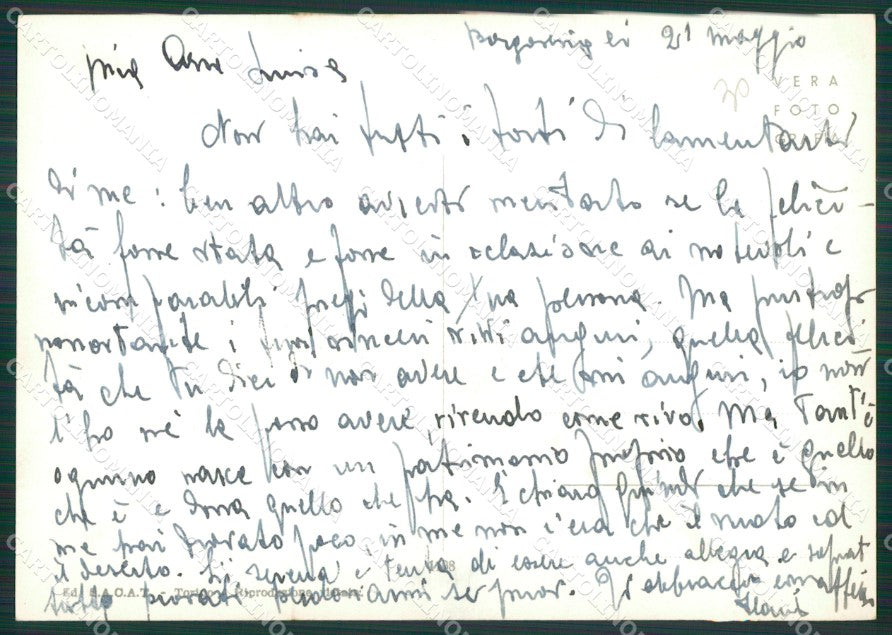 21 maggio
mia cara Luisa
VERA
FOTO
GRAFIA
Non hai tutti i torti di lamentarti
di me: ben altro avresti meritato se la felici-
tà fosse stata e fosse in relazione ai notevoli e
incomparabili pregi della tua persona. Ma purtroppo
nonostante i tuoi sinceri auguri, quella felici
tà che tu dici di non avere e che mi auguri, io non
l'ho nè la posso avere, vivendo come vivo. Ma tant'è
ognuno nasce con un patrimonio proprio che è quello
che è e dona quello che ha. È chiaro quindi che se in
me hai trovato poco, in me non c'era che il vuoto ed
il deserto. Sii serena e tenta di essere anche allegra e soprat
tutto Ti abbraccio con affetto
Ed. S.A.C.A.T. - Torino - Riproduzione vietata